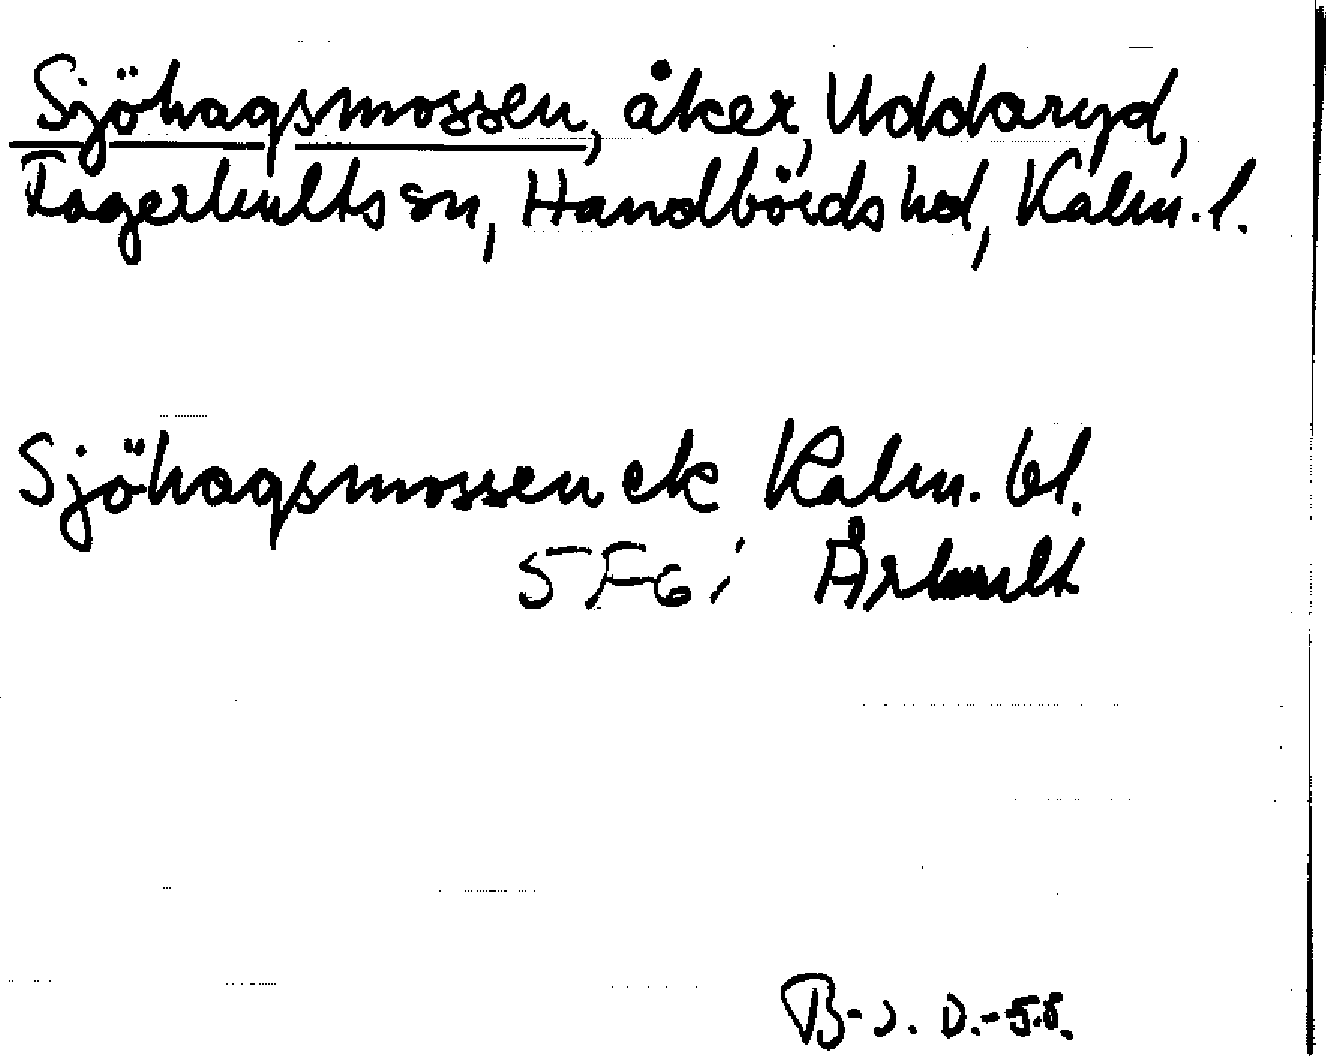 Sjöhagsmossen, åker, Uddaryd,
Fagerhults sn, Handbörds hd, Kalm. l.
Sjöhagsmossen ek Kalm. bl.
5 F6i Århult
B-J. D.-55.